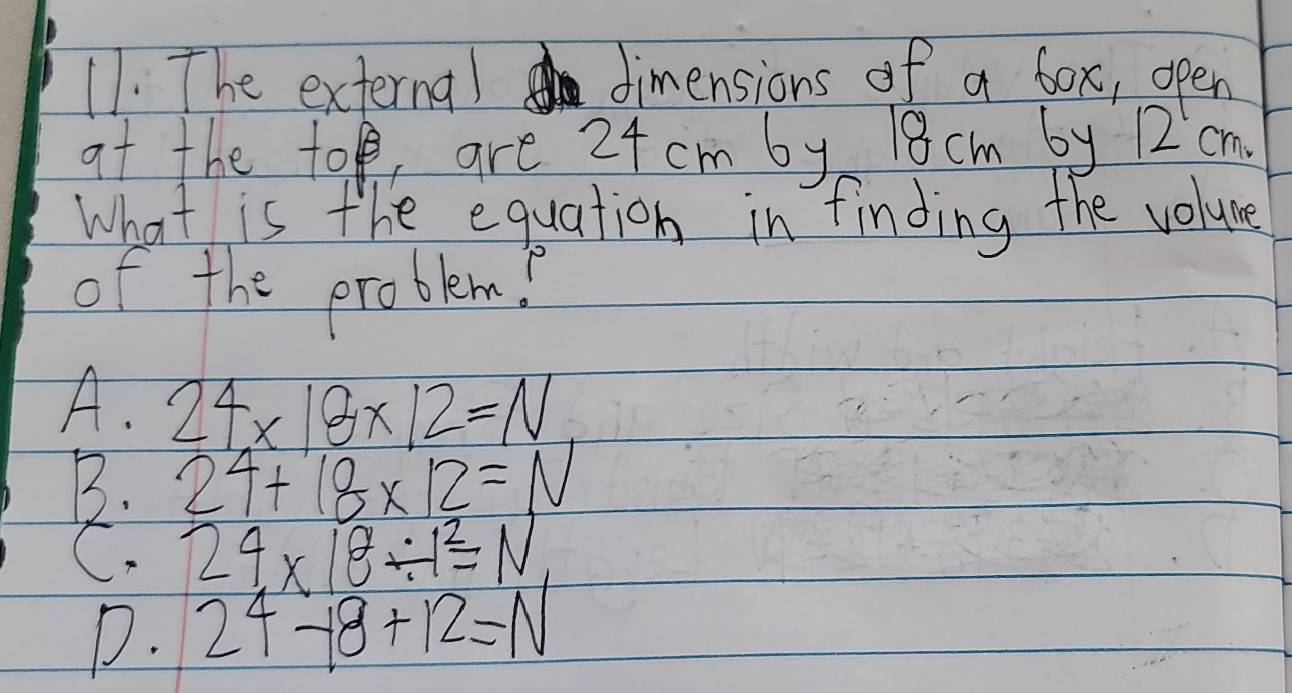 11. The external dimensions of a box, open
at the top, are 24 cm by 18 cm by 12 cm.
What is the equation in finding the volume
of the problem?
A. 24 x 18 x 12 = N
B. 24 + 18 x 12 = N
C. 24 x 18 ÷ 12 = N
D. 24 - 18 + 12 = N